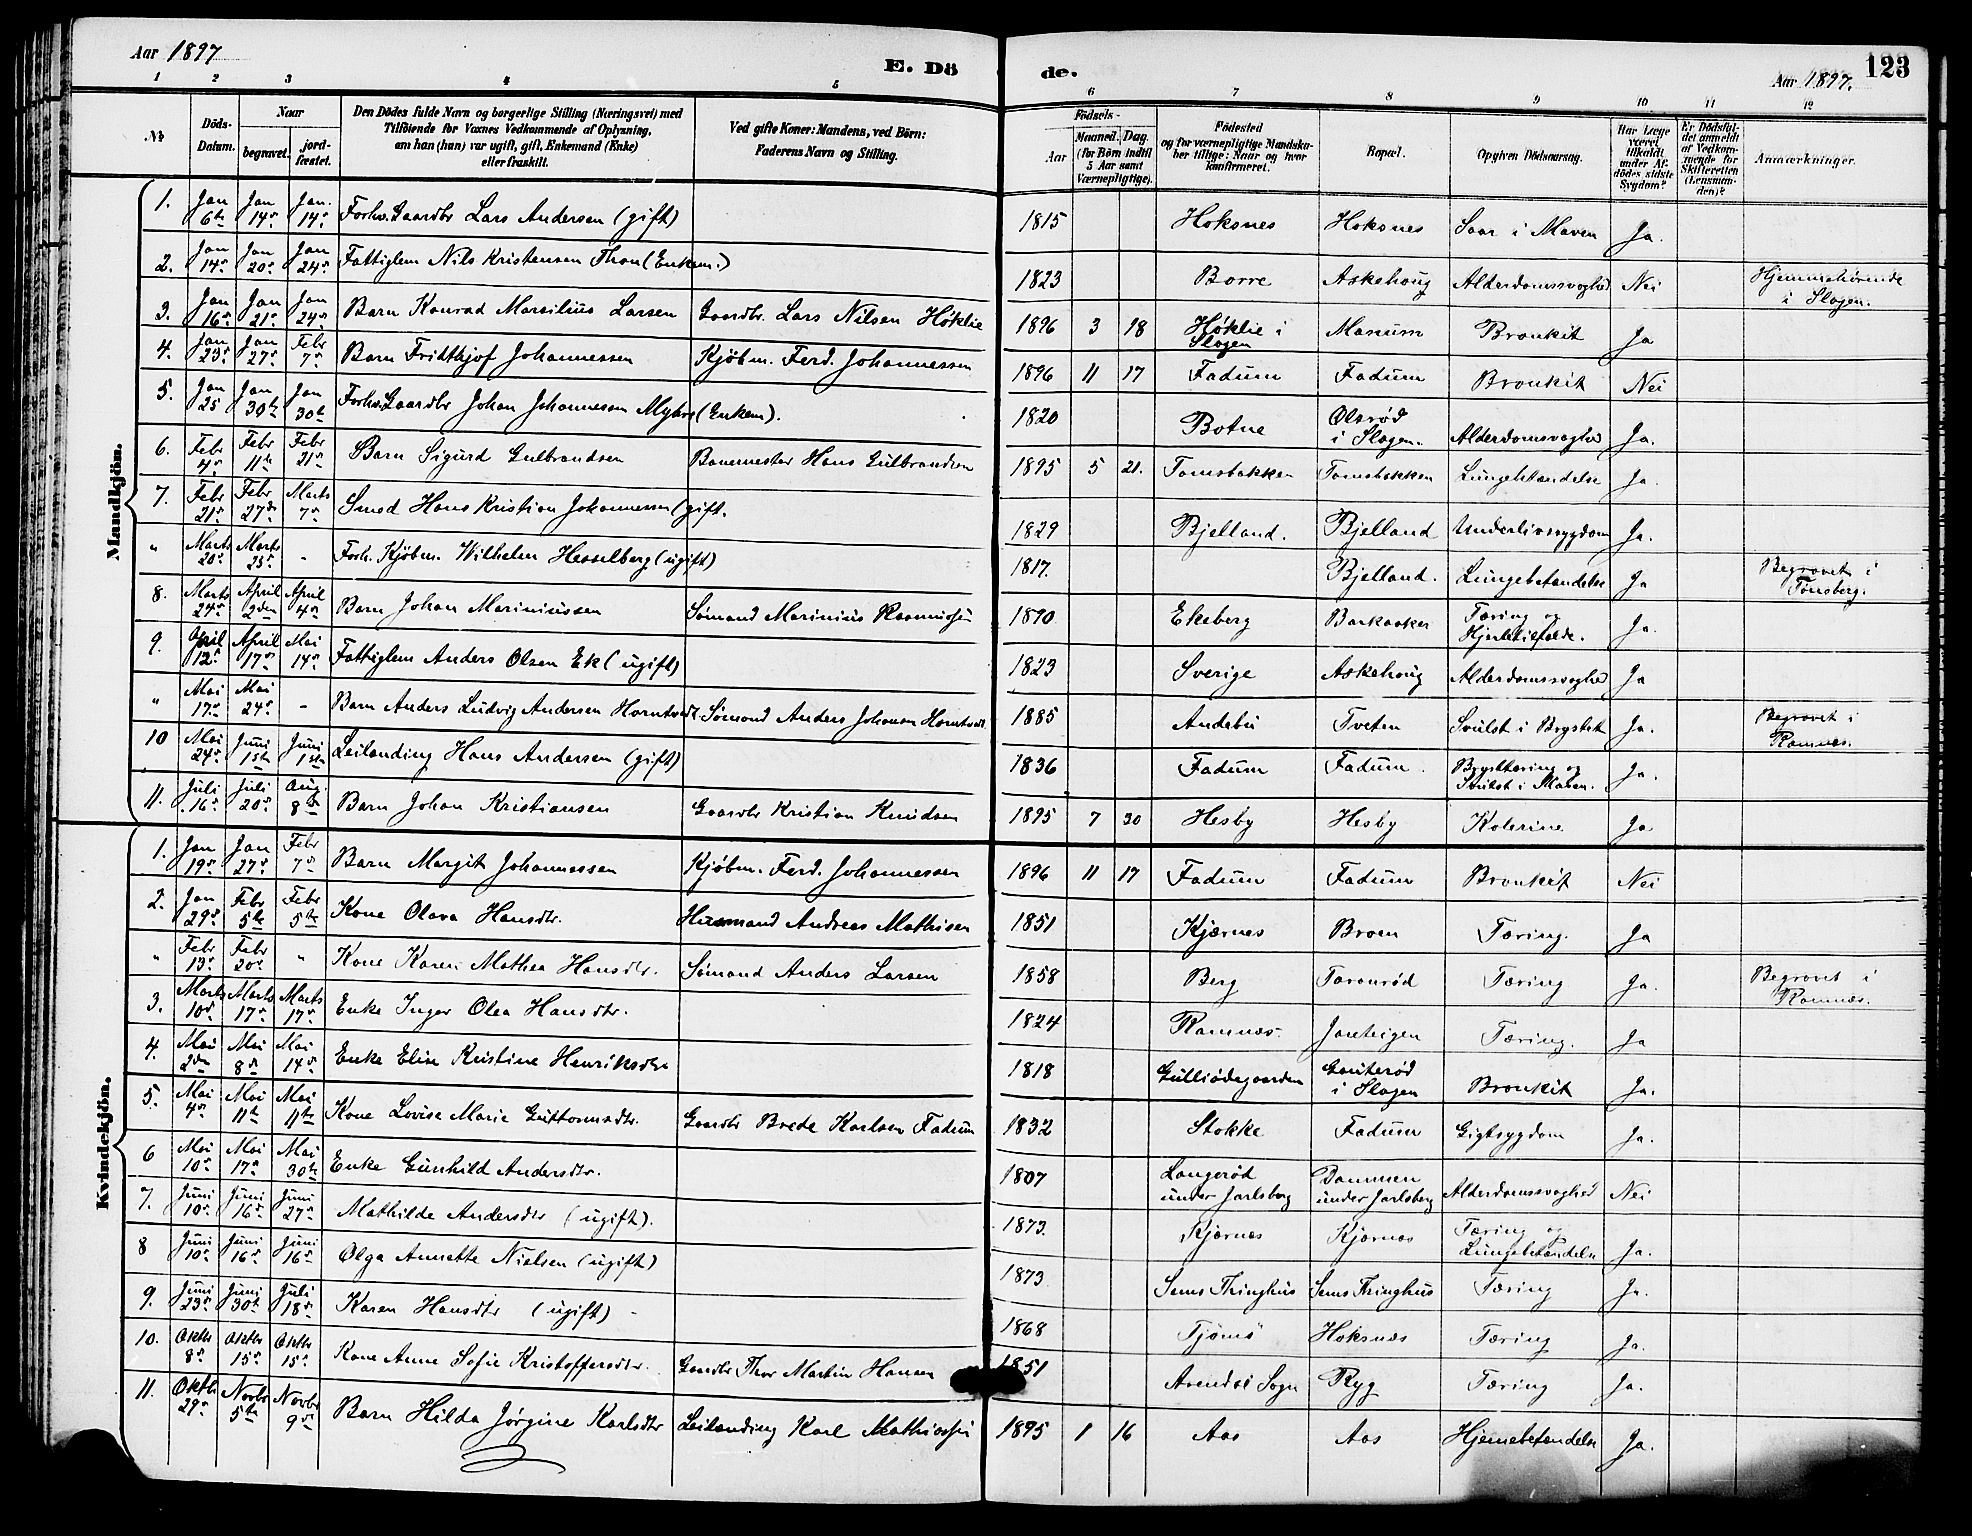 Aar 1897
E. Dö de.
Aar 1897. 123
1 2 3 4 5 6 7 8 9 10 11 12
No
Döds-Datum.
Naar
begravet.
jordfæstet.
Den Dödes fulde Navn og borgerlige Stilling (Næringsvei) med
Tilföiende for Voxnes Vedkommende af Oplysning,
om han (hun) var ugift, gift, Enkemand (Enke)
eller fraskilt.
Ved gifte Koner: Mandens, ved Börn:
Faderens Navn og Stilling.
Födsels-
Aar
Maaned. Dag.
(for Börn indtil
5 Aar samt
Værnepligtige).
Födested
og for værnepligtige Mandskaber tillige: Naar og hvor
konfirmeret.
Bopæl.
Opgiven Dödsaarsag.
Har Læge været tilkaldt under Afdödes sidste Sygdom?
Er Dödsfaldet anmeldt af Vedkommende for Skifteretten (Lensmanden)?
Anmærkninger.
Mandkjön.
1. Jan 6te Jan 14de Jan. 14de Forhv. Gaardbr Lars Andersen (gift) 1815 Hoksnes Hoksnes Saar i Maven Ja.
2. Jan 14de Jan 20de Jan 24de Fattiglem Nils Kristensen Thon (Enkem.) 1823 Borre Askehoug Alderdomssvaghed Nei Hjemmehørende i Slagen.
3. Jan 16de Jan 21de Jan 24de Barn Konrad Marsilius Larsen Gaardbr. Lars Nilsen Høklie 1896 3 18 Høklie i Slagen Manum Bronkit Ja
4. Jan 23de Jan 27de Febr 7de Barn Fridthjof Johannessen Kjøbm. Ferd. Johannessen 1896 11 17 Fadum Fadum Bronkit Nei
5. Jan 25 Jan 30te Jan 30te Forhv. Gaardbr Johan Johannessen Myhre (Enkem). 1820 Botne Olsrød i Slagen. Alderdomssvaghed Ja.
6. Febr 4de Febr 11te Febr 21de Barn Sigurd Gulbrandsen Banemester Hans Gulbrandsen 1895 5 21. Tomsbakken Tomsbakken Lungebetændelse Ja.
7. Febr 21de Febr 27de Marts 7de Smed Hans Kristian Johannessen (gift. 1829 Bjelland. Bjelland Underlivssygdom Ja.
" Marts 20de Marts 25de - Forh. Kjøbm. Wilhelm Hesselberg (ugift) 1817. Bjelland. Lungebetændelse Ja Begravet i Tønsberg.
8. Marts 24de April 2den April 4de Barn Johan Mariniussen Sømand Marinius Rasmussen 1890 Ekeberg Barkaaker Tæring og Hjertetilfælde. Ja.
9. April 12te April 17de Mai 14de Fattiglem Anders Olsen Ek (ugift) 1823 Sverige Askehoug Alderdomssvaghed Ja
" Mai 17de Mai 24de - Barn Anders Ludvig Andersen Horntvedt. Sømand Anders Johansen Horntvedt 1885 Andebu Tveten Svulst i Brystet Ja. Begravet i Ramnæs.
10 Mai 24de Juni 1ste Juni 1ste Leilænding Hans Andersen (gift) 1836 Fadum Fadum. Brysttæring og Svulst i Maven. Ja.
11. Juli 16de Juli 20de Aug. 8de Barn Johan Kristiansen Gaardbr Kristian Knudsen 1895 7 30 Hesby Hesby Kolerine Ja
Kvindekjön.
1. Jan 19de Jan 27de Febr 7de Barn Margit Johannessen Kjøbm. Ferd. Johannessen 1896 11 17 Fadum Fadum Bronkit Nei
2. Jan 29de Febr 5te Febr 5te Kone Olava Hansdtr. Husmand Andreas Mathisen 1851 Kjærnes Broen Tæring. Ja
" Febr 13de Febr 20de " Kone Karen Mathea Hansdtr. Sømand Anders Larsen 1858 Berg Taranrød Tæring Ja. Begravet i Ramnæs.
3. Marts 10de Marts 17de Marts 17de Enke Inger Olea Hansdtr. 1824 Ramnæs. Jareteigen Tæring. Ja
4. Mai 2den Mai 8de Mai 14de Enke Elise Kristine Henriksdtr 1818 Gulliødegaarden Gauterød i Slagen Bronkit Ja.
5. Mai 4de Mai 11te Mai 11te Kone Lovise Marie Guttormsdtr. Gaardbr Brede Karlsen Fadum 1832 Stokke Fadum Gigtsygdom Ja.
6 Mai 10de Mai 17de Mai 30te Enke Gunhild Andersdtr. 1807 Langerød under Jarlsberg Dammen under Jarlsberg Alderdomssvaghed Nei
7. Juni 10de Juni 16de Juni 27de Mathilde Andersdtr (ugift). 1873. Kjærnæs Kjærnæs Tæring og Lungebetændelse Ja.
8 Juni 10de Juni 16de Juni 16de Olga Annette Nielsen (ugift) 1873 Sems Thinghus Sems Thinghus Tæring Ja.
9. Juni 23de Juni 30te Juli 18de Karen Hansdtr (ugift) - 1868 Tjømø Hoksnæs Tæring Ja.
10. Oktbr 8de Oktbr 15de Oktbr 15de Kone Anne Sofie Kristoffersdtr. Gaardbr Thor Martin Hansen 1851 Arendal Sogn Ryg Tæring Ja.
11. Oktbr 29de Novbr 5te Novbr 9de Barn Hilda Jørgine Karlsdtr Leilænding Karl Mathiassen 1895 1 16 Aas Aas Hjernebetændelse Ja.